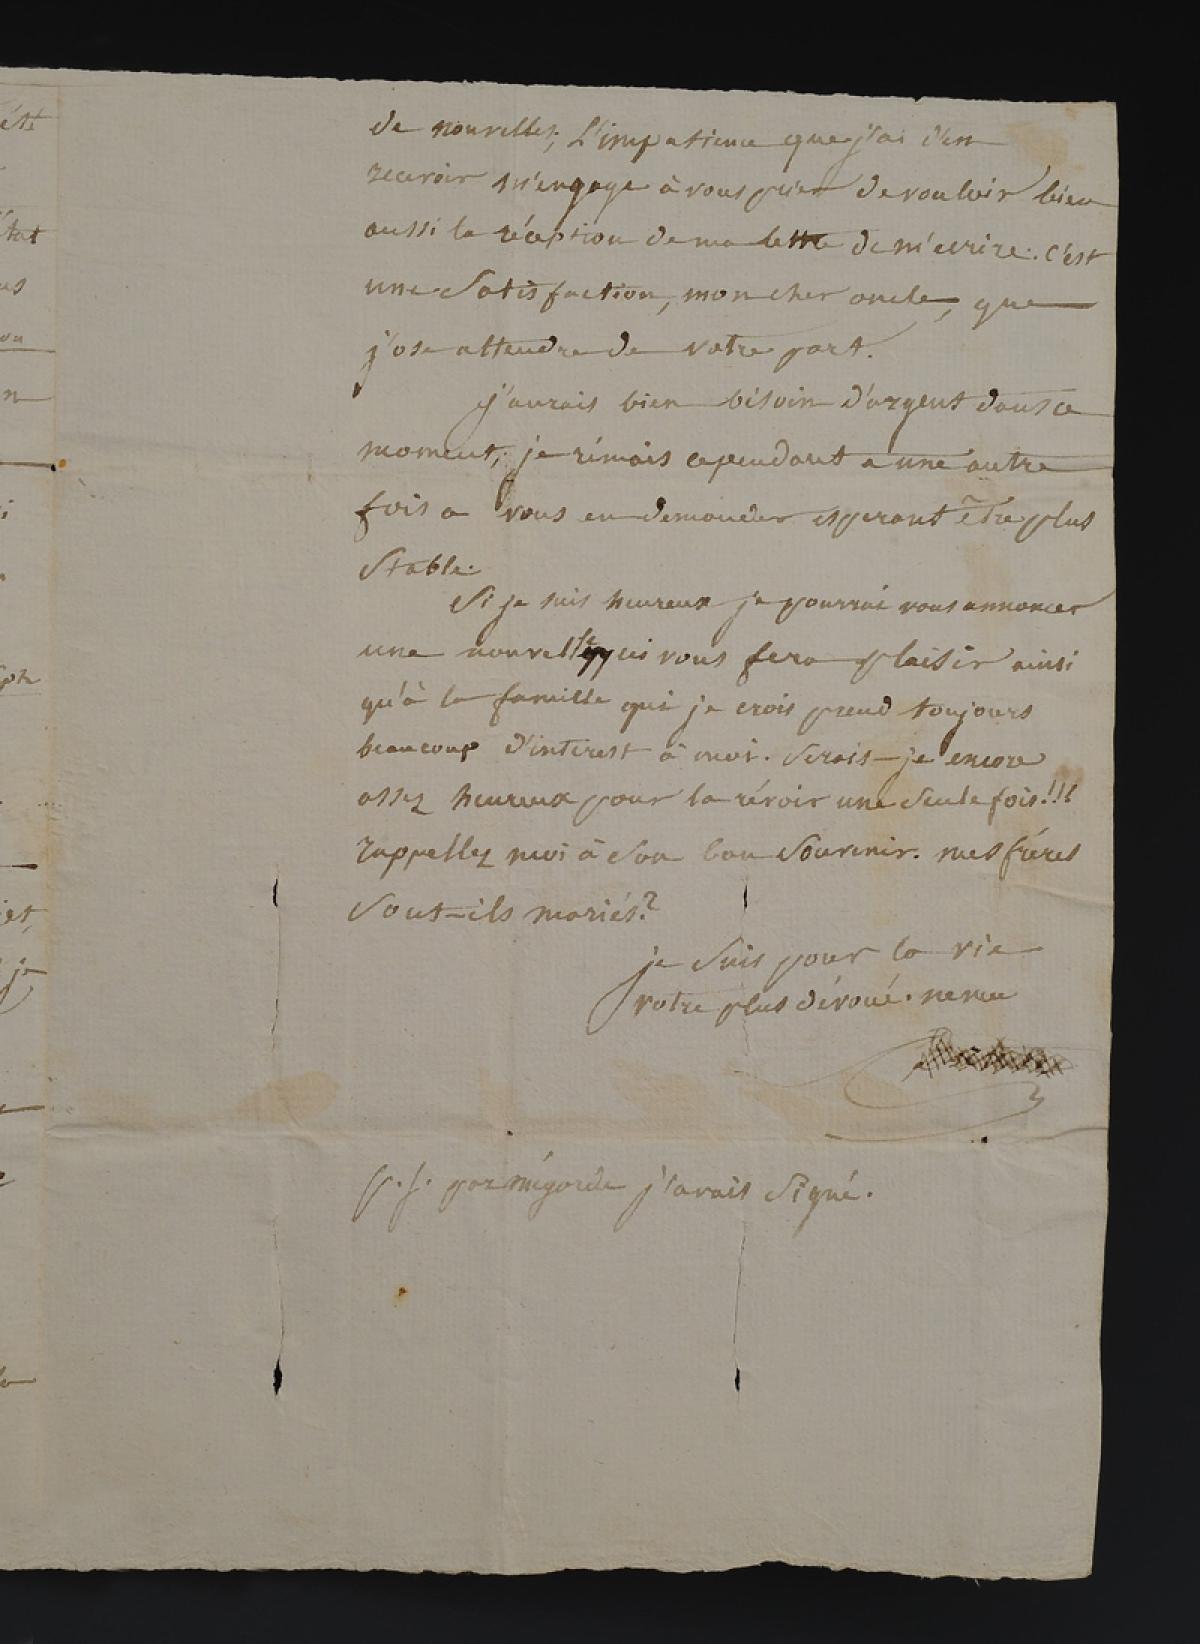 de nouvelles; L'impatience que j'ai d'en
recevoir m'engage à vous prier de vouloir bien
aussi la réception de ma lettre de m'ecrire. C'est
une Satisfaction, mon cher oncle, que
j'ose attendre de votre part.
j'aurais bien bésoin d'argent dans ce
moment, je rémais cependant a une autre
fois a vous en demander esperant être plus
Stable.
Si je suis heureux je pourrai vous annoncer
une nouvelle qui vous fera plaisir ainsi
qu'à la famille qui je crois prend toujours
beaucoup d'interest à moi. Serais-je encore
assez heureux pour la révoir une Seule fois!!!
rappellez moi à Son bon Souvenir. mes fréres
Sont-ils mariés?
je Suis pour la vie
votre plus dévoué. neveu
p.s. par mégarde j'avais Signé.
été
'état
us
on
n
i
ph
jet,
je